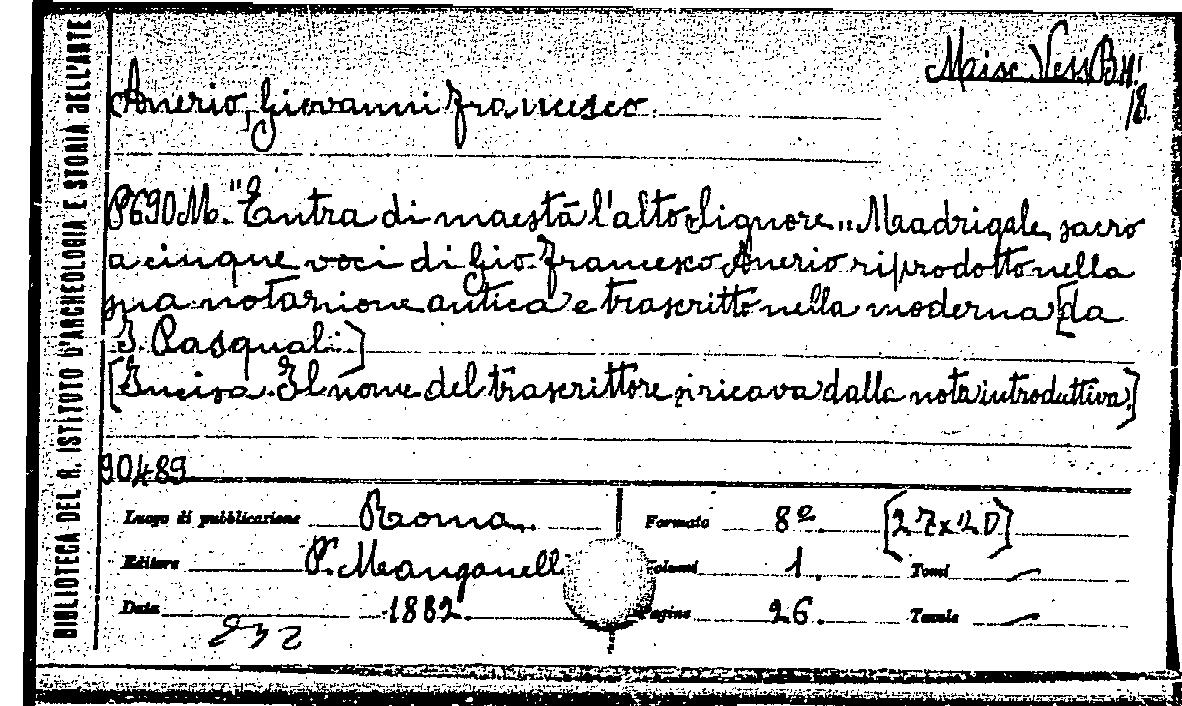 BIBLIOTECA DEL R. ISTITUTO D'ARCHEOLOGIA E STORIA DELL'ARTE
Misc. Vess. B.H. 18.
Anerio, Giovanni Francesco.
P690M. "Entra di maestà l'alto Signore" Madrigale sacro
a cinque voci di Gio. Francesco Anerio riprodotto nella
sua notazione antica e trascritto nella moderna [da
I. Pasquali.]
[Inciso. Il nome del trascrittore si ricava dalla nota introduttiva.]
90489
Luogo di pubblicazione Roma. Formato 8º. [27x20]
Editore P. Manganelli Volumi 1. Tomi —
Data 1882. Pagine 26. Tavole —